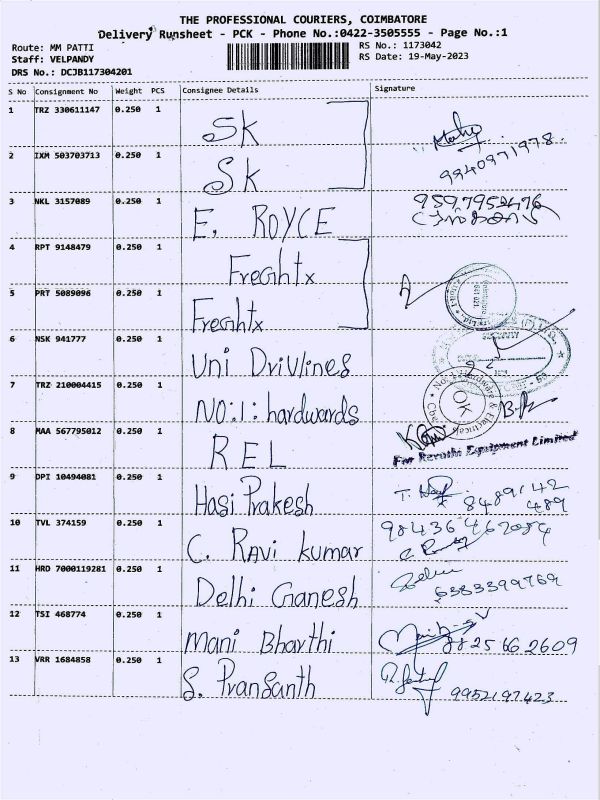 THE PROFESSIONAL COURIERS, COIMBATORE
Delivery Runsheet - PCK - Phone No.:0422-3505555 - Page No.:1
Route: MM PATTI
Staff: VELPANDY
DRS No.: DCJB117304201
RS No.: 1173042
RS Date: 19-May-2023
S No Consignment No Weight PCS Consignee Details Signature
1 TRZ 330611147 0.250 1 SK
9940971978
2 IXM 503703713 0.250 1 SK
3 NKL 3157089 0.250 1 E. ROYCE
4 RPT 9148479 0.250 1 Freghtx
5 PRT 5089096 0.250 1 Freghtx
6 NSK 941777 0.250 1 Uni Drivlines
7 TRZ 210004415 0.250 1 NO:1: hardwards
OK
8 MAA 567795012 0.250 1 R E L
For Revathi Equipment Limited
9 DPI 10494081 0.250 1 Hasi Prakesh
8489142
489
10 TVL 374159 0.250 1 C. Ravi kumar
11 HRD 7000119281 0.250 1 Delhi Ganesh
6383399769
12 TSI 468774 0.250 1 Mani Bharthi
8825662609
13 VRR 1684858 0.250 1 S. Pransanth
9952197423